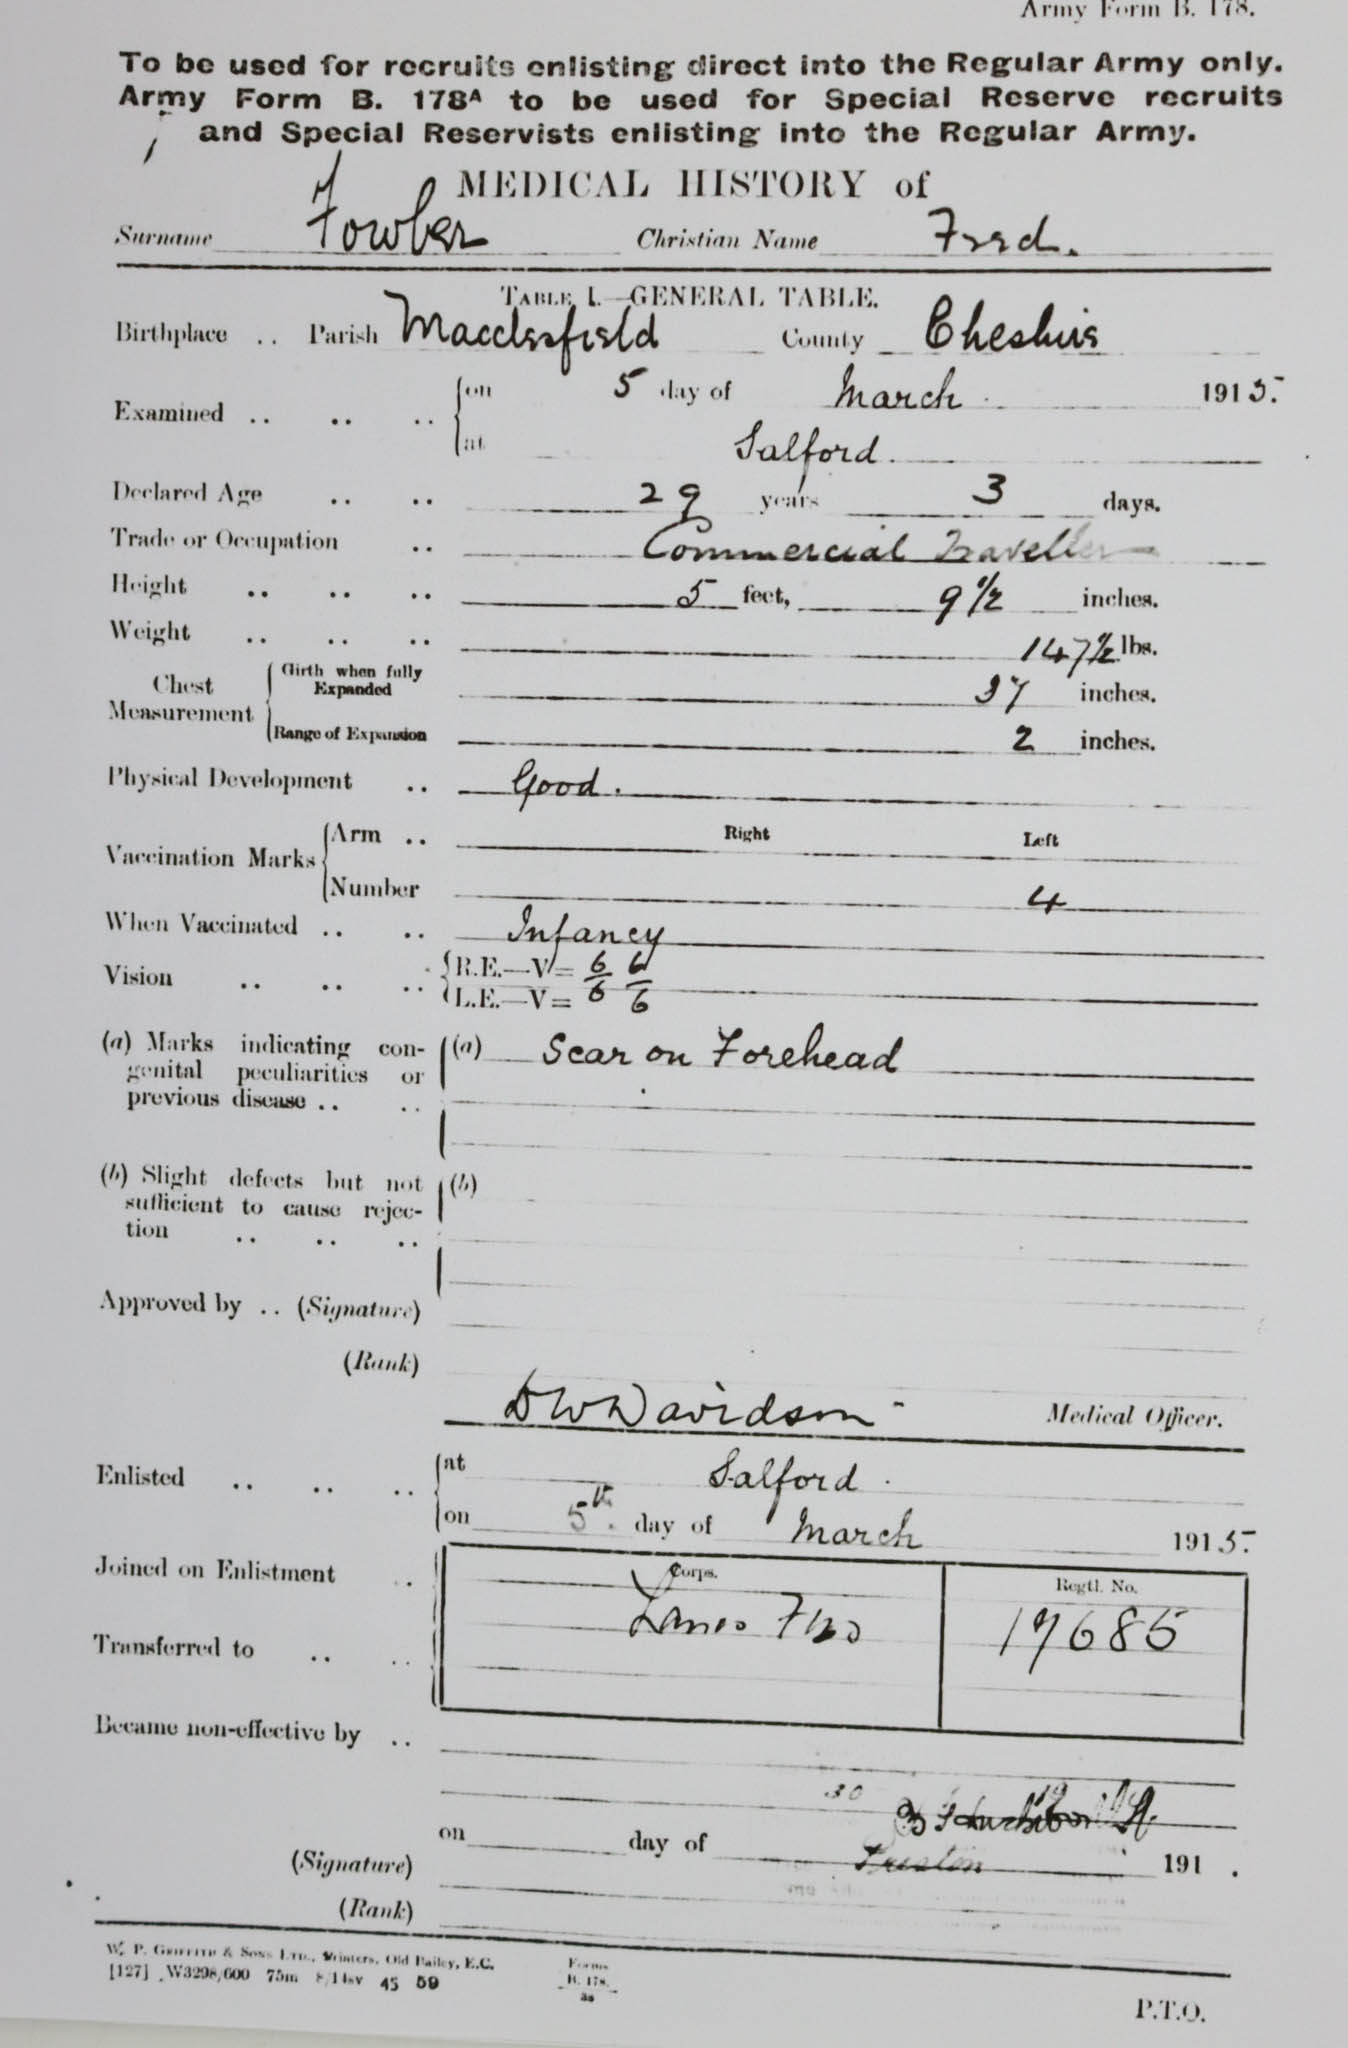 Army Form B. 178.
To be used for recruits enlisting direct into the Regular Army only.
Army Form B. 178A to be used for Special Reserve recruits
and Special Reservists enlisting into the Regular Army.
MEDICAL HISTORY of
Surname Fowler Christian Name Fred.
TABLE I.—GENERAL TABLE.
Birthplace .. Parish Macclesfield County Cheshire
Examined .. .. .. on 5 day of March 1915.
at Salford.
Declared Age .. .. 29 years 3 days.
Trade or Occupation .. Commercial Traveller
Height .. .. .. 5 feet, 9 1/2 inches.
Weight .. .. .. 147 1/2 lbs.
Chest Measurement Girth when fully Expanded 37 inches.
Range of Expansion 2 inches.
Physical Development .. Good.
Vaccination Marks Arm .. Right Left
Number 4
When Vaccinated .. .. Infancy
Vision .. .. .. R.E.—V= 6/6 6/6
L.E.—V=
(a) Marks indicating con- (a) Scar on Forehead
genital peculiarities or
previous disease .. ..
(b) Slight defects but not (b)
sufficient to cause rejec-
tion .. .. ..
Approved by .. (Signature)
(Rank)
D W Davidson Medical Officer.
Enlisted .. .. .. at Salford.
on 5th. day of March 1915.
Corps. Regtl. No.
Joined on Enlistment .. Lancs Fus 17685
Transferred to .. ..
Became non-effective by ..
30
on day of 191 .
Preston
(Signature)
(Rank)
W. P. GRIFFITH & SONS LTD., Printers, Old Bailey, E.C.
[127] W3298/600 75m 8/14sv 45 59
Forms
B. 178.
P.T.O.